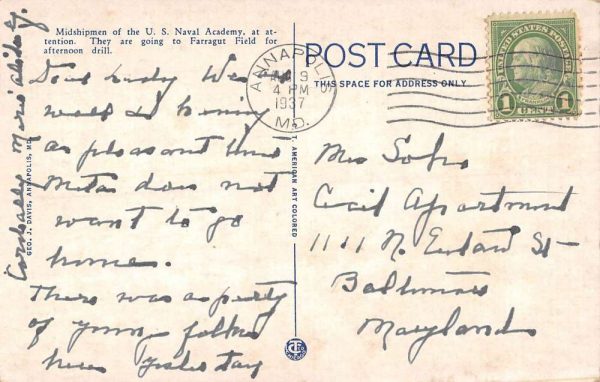 Midshipmen of the U. S. Naval Academy, at at-
tention. They are going to Farragut Field for
afternoon drill.
Dear
well & having
a pleasant time
Meta does not
want to go
home.
There was a party
of young folks
here yesterday
Cordially
GEO. J. DAVIS, ANNAPOLIS, MD.
C. T. AMERICAN ART COLORED
POST CARD
THIS SPACE FOR ADDRESS ONLY
ANNAPOLIS
9
4 PM
1937
MD.
UNITED STATES POSTAGE
1 CENT 1
Mrs
Cecil Apartment
1111 N. Eutaw St
Baltimore
Maryland